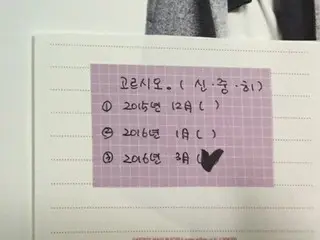 고르시오. (신·중·히)
① 2015년 12月 ( )
② 2016년 1月 ( )
③ 2016년 3月 (♥)